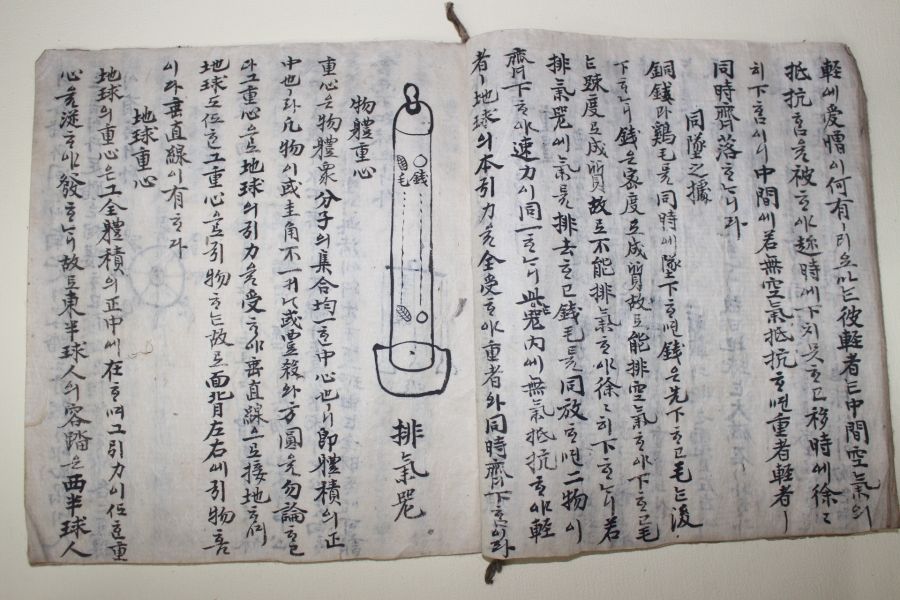 輕에愛憎이何有ㅣ리오마는彼輕者는中間空氣의
抵抗홈을被ᄒᆞ야趂時에下치못ᄒᆞ고移時에徐々
히下홈이니中間에若無空氣抵抗ᄒᆞ면重者輕者ㅣ
同時齊落ᄒᆞᄂᆞ니라
同墜之據
銅錢과鷄毛를同時에墜下ᄒᆞ면錢은先下ᄒᆞ고毛는後
下ᄒᆞᄂᆞ니錢은密度로成質故로能排空氣ᄒᆞ야下ᄒᆞ고毛
는踈度로成質故로不能排氣ᄒᆞ야徐々히下ᄒᆞᄂᆞ니若
排氣器에氣를排去ᄒᆞ고錢毛를同放ᄒᆞ면二物이
齊下ᄒᆞ야速力이同一ᄒᆞ니此器內에無氣抵抗ᄒᆞ야輕
者ㅣ地球의本引力을全受ᄒᆞ야重者와同時齊下
錢
毛
排氣器
物體重心
重心은物體衆分子의集合均一ᄒᆞᆫ中心也ㅣ니即體積의正
中也ㅣ라凡物이或圭角不一커나或豊殺와方圓을勿論ᄒᆞ고
다그重心으로地球의引力을受ᄒᆞ야垂直線으로接地ᄒᆞ며
地球도任ᄒᆞᆫ그重心으로引物ᄒᆞ는故로面背左右에引物홈
이다垂直線이有ᄒᆞ다
地球重心
地球의重心은그全體積의正中에在ᄒᆞ며그引力이任ᄒᆞᆫ重
心을從ᄒᆞ야發ᄒᆞᄂᆞ니故로東半球人의容踏은西半球人